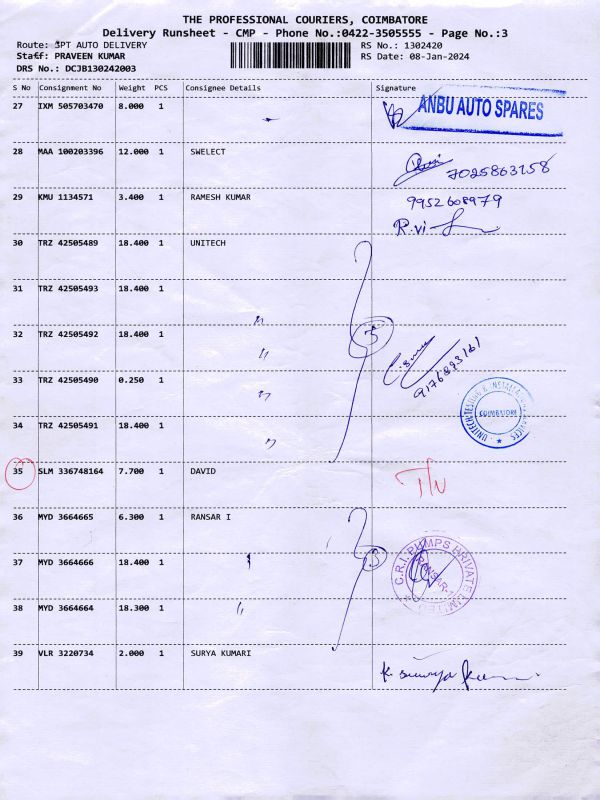 THE PROFESSIONAL COURIERS, COIMBATORE
Delivery Runsheet - CMP - Phone No.:0422-3505555 - Page No.:3
Route: 3PT AUTO DELIVERY
RS No.: 1302420
Staff: PRAVEEN KUMAR
RS Date: 08-Jan-2024
DRS No.: DCJB130242003
S No Consignment No Weight PCS Consignee Details Signature
27 IXM 505703470 8.000 1 ANBU AUTO SPARES
28 MAA 100203396 12.000 1 SWELECT
7025863158
29 KMU 1134571 3.400 1 RAMESH KUMAR 9952608979
R.vi
30 TRZ 42505489 18.400 1 UNITECH
31 TRZ 42505493 18.400 1 "
32 TRZ 42505492 18.400 1 " 5
9176893161
33 TRZ 42505490 0.250 1 "
COIMBATORE
34 TRZ 42505491 18.400 1 "
35 SLM 336748164 7.700 1 DAVID
36 MYD 3664665 6.300 1 RANSAR I
37 MYD 3664666 18.400 1 " 3
C.R.I. PUMPS PRIVATE LIMITED
RANSAR-1
38 MYD 3664664 18.300 1 "
39 VLR 3220734 2.000 1 SURYA KUMARI
K. Surya Kum